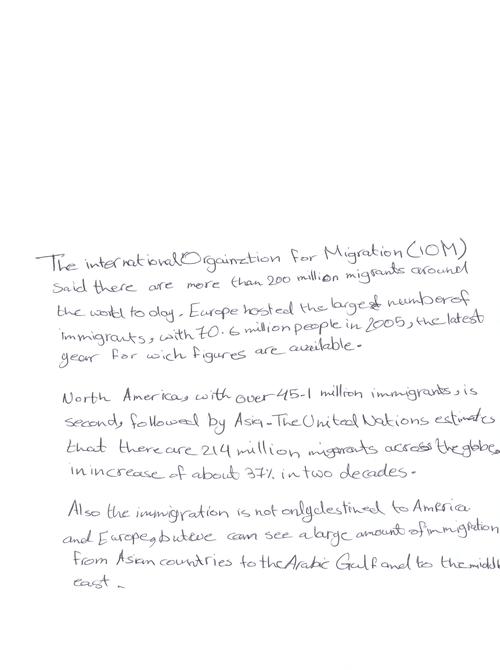 The international Orgainztion for Migration (IOM)
said there are more than 200 million migrants around
the world to day. Europe hosted the largest number of
immigrants, with 70.6 million people in 2005, the latest
year for wich figures are available.
North America, with over 45.1 million immigrants, is
second, followed by Asia. The United Nations estimates
that there are 214 million migrants across the globe,
in increase of about 37% in two decades.
Also the immigration is not only destined to America
and Europe, but we can see a large amount of immigration
from Asian countries to the Arabic Gulf and to the middl
east.